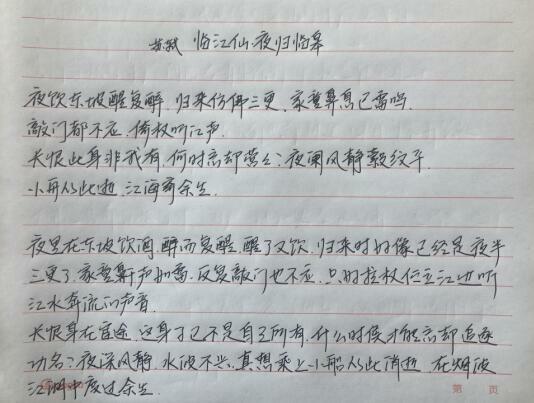 苏轼 临江仙·夜归临皋
夜饮东坡醒复醉,归来仿佛三更。家童鼻息已雷鸣。
敲门都不应,倚杖听江声。
长恨此身非我有,何时忘却营营?夜阑风静縠纹平。
小舟从此逝,江海寄余生。
夜里在东坡饮酒,醉而复醒,醒了又饮。归来时好像已经是夜半
三更了,家童鼾声如雷,反复敲门也不应。只好拄杖伫立江边听
江水奔流的声音。
长恨身在宦途,这身子已不是自己所有。什么时候才能忘却追逐
功名?夜深风静,水波不兴。真想乘上小船从此消逝,在烟波
江湖中度过余生。
第 页